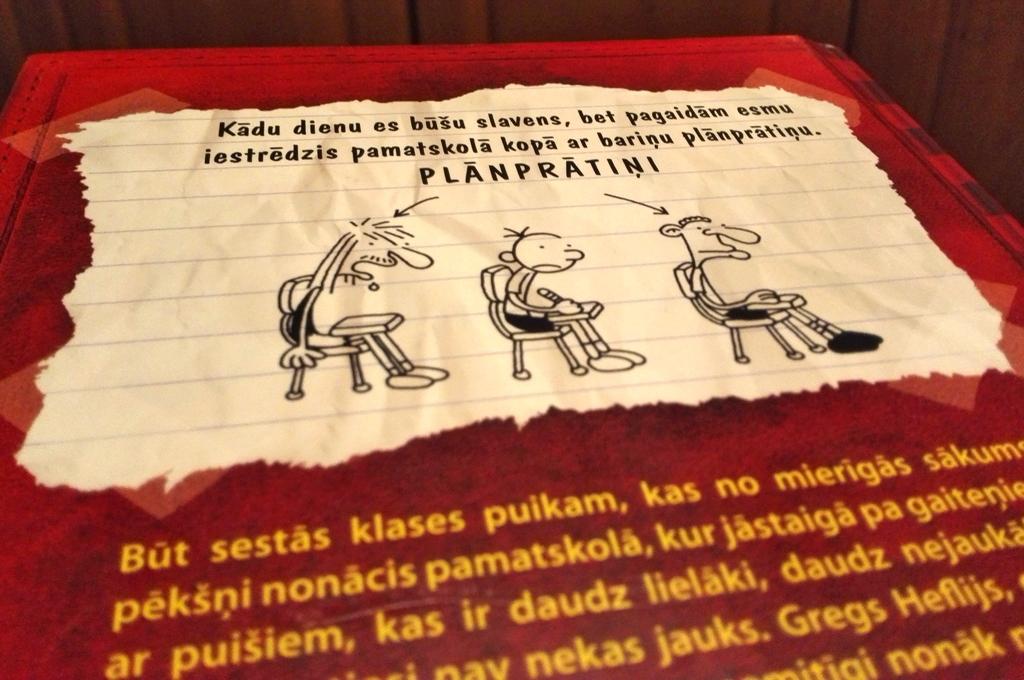 Kādu dienu es būšu slavens, bet pagaidām esmu
iestrēdzis pamatskolā kopā ar bariņu plānprātiņu.
PLĀNPRĀTIŅI
Būt sestās klases puikam, kas no mierīgās
pēkšņi nonācis pamatskolā, kur jāstaigā pa
ar puišiem, kas ir daudz lielāki, daudz
nav nekas jauks. Gregs Heflijs,
nonāk